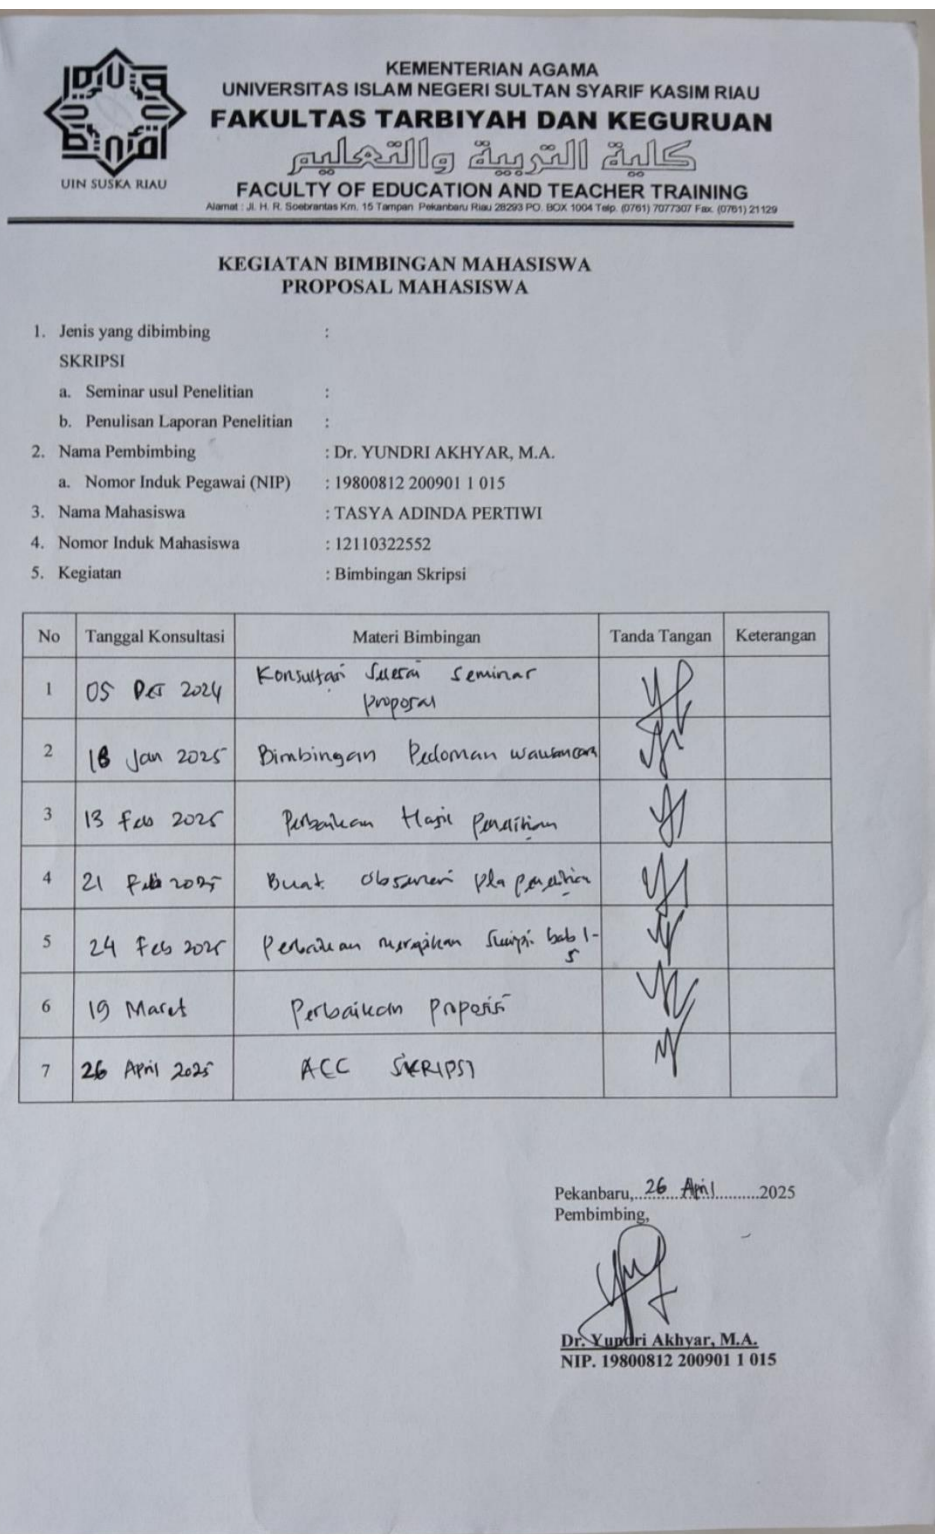 UIN SUSKA RIAU
KEMENTERIAN AGAMA
UNIVERSITAS ISLAM NEGERI SULTAN SYARIF KASIM RIAU
FAKULTAS TARBIYAH DAN KEGURUAN
كلية التربية والتعليم
FACULTY OF EDUCATION AND TEACHER TRAINING
Alamat : Jl. H. R. Soebrantas Km. 15 Tampan Pekanbaru Riau 28293 PO. BOX 1004 Telp. (0761) 7077307 Fax. (0761) 21129
KEGIATAN BIMBINGAN MAHASISWA
PROPOSAL MAHASISWA
1. Jenis yang dibimbing :
SKRIPSI
a. Seminar usul Penelitian :
b. Penulisan Laporan Penelitian :
2. Nama Pembimbing : Dr. YUNDRI AKHYAR, M.A.
a. Nomor Induk Pegawai (NIP) : 19800812 200901 1 015
3. Nama Mahasiswa : TASYA ADINDA PERTIWI
4. Nomor Induk Mahasiswa : 12110322552
5. Kegiatan : Bimbingan Skripsi
No Tanggal Konsultasi Materi Bimbingan Tanda Tangan Keterangan
1 05 2024 Konsultasi seminar
proposal
2 18 Jan 2025 Bimbingan Pedoman wawancara
3 13 Feb 2025 Perbaikan Hasil penelitian
4 21 Feb 2025 Buat penelitian
5 24 Feb 2025 Perbaikan bab 1-
5
6 19 Maret Perbaikan
7 26 April 2025 ACC SKRIPSI
Pekanbaru,..26 April..........2025
Pembimbing,
Dr. Yundri Akhyar, M.A.
NIP. 19800812 200901 1 015